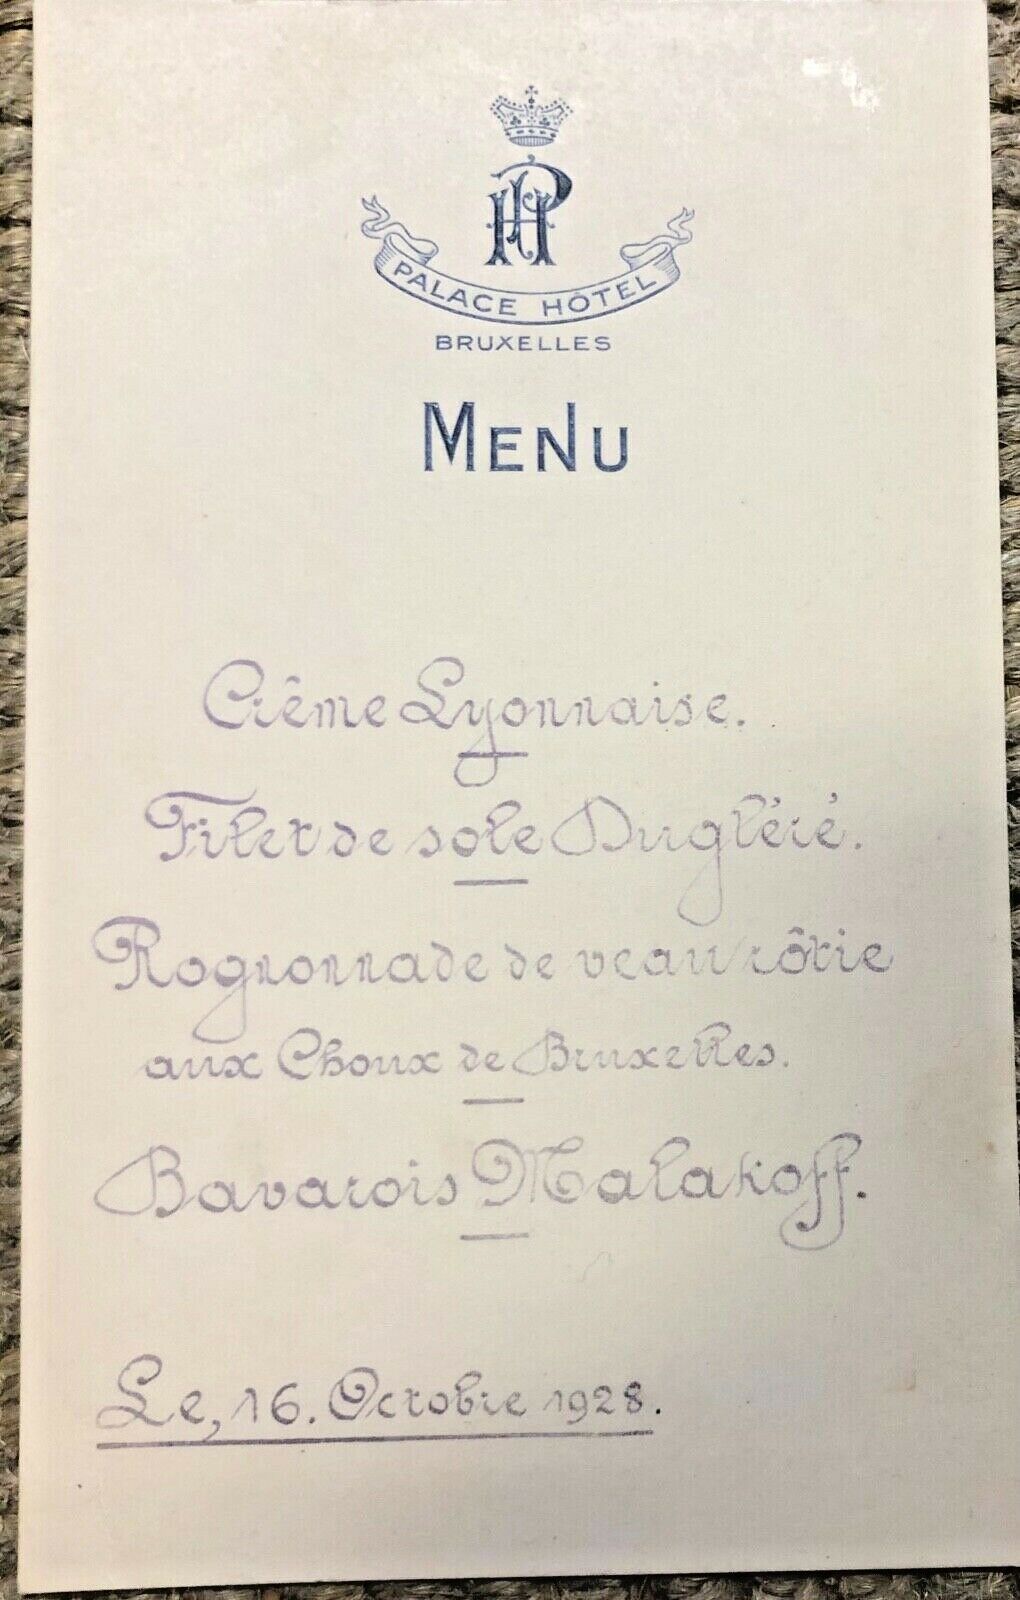 HP
PALACE HÔTEL
BRUXELLES
MENU
Crême Lyonnaise.
Filet de sole Dugléré.
Rognonnade de veau rôtie
aux Choux de Bruxelles.
Bavarois Malakoff.
Le, 16. Octobre 1928.